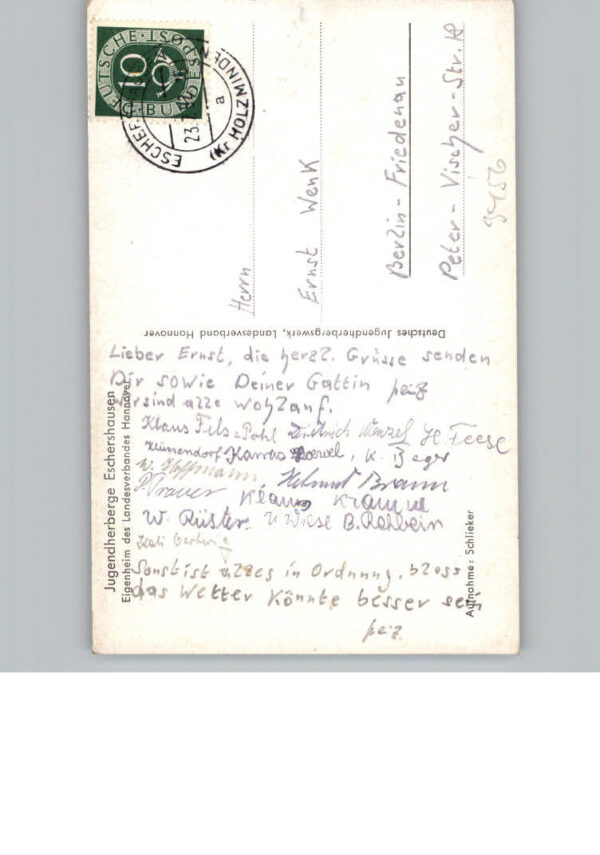 DEUTSCHE BUNDESPOST
10
23.
a
(Kr HOLZMINDEN)
Herrn
Ernst Wenk
Berlin-Friedenau
Peter-Vischer-Str. 18
Deutsches Jugendherbergswerk, Landesverband Hannover
Lieber Ernst, die herzl. Grüsse senden
Dir sowie Deiner Gattin
wir sind alle wohlauf.
Klaus Fils-Pohl Dietrich Wenzel H. Feese
K. Beger
W. Hoffmann, Helmut Braun
Klaus
W. Rüster. Wiese B. Rehbein
Sonst ist alles in Ordnung, bloss
das Wetter könnte besser sein
Jugendherberge Eschershausen
Eigenheim des Landesverbandes Hannover
Aufnahme: Schlieker